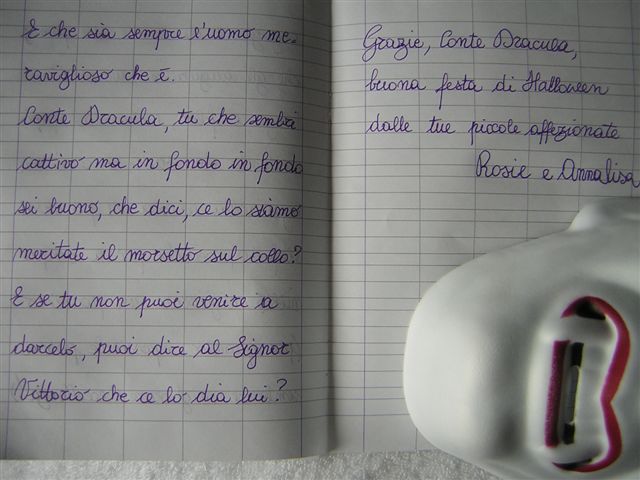 E che sia sempre l'uomo me-
raviglioso che è.
Conte Dracula, tu che sembri
cattivo ma in fondo in fondo
sei buono, che dici, ce lo siamo
meritate il morsetto sul collo?
E se tu non puoi venire a
darcelo, puoi dire al Signor
Vittorio che ce lo dia lui?
Grazie, Conte Dracula,
buona festa di Halloween
dalle tue piccole affezionate
Rosie e Annalisa